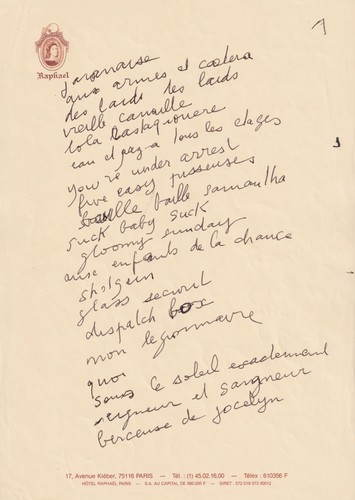 Raphael
1
javanaise
aux armes et caetera
des laids des laids
vieille canaille
lola rastaquouere
eau et gaz a tous les etages
you're under arrest
five easy pisseuses
baille baille samantha
suck baby suck
gloomy sunday
aux enfants de la chance
shotgun
glass securit
dispatch box
mon legionnaire
quoi
sous le soleil exactement
seigneur et saigneur
berceuse de jocelyn
17, Avenue Kléber, 75116 PARIS — Tél. : (1) 45.02.16.00 — Télex : 610356 F
HÔTEL RAPHAËL PARIS — S.A. AU CAPITAL DE F — SIRET :